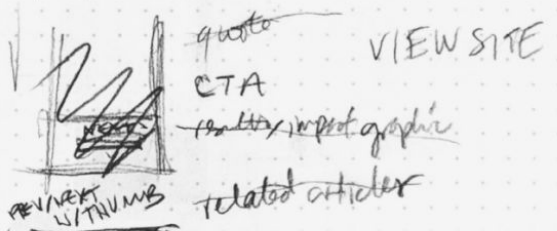 quote
VIEW SITE
CTA
results/impact graphic
related articles
NEXT
PREV/NEXT
W/THUMB